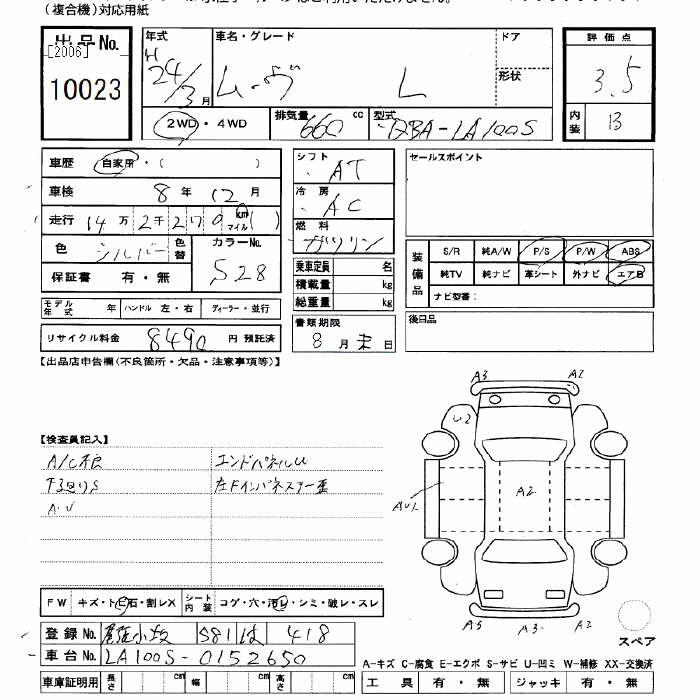 (複合機)対応用紙
出品No. [2006] 10023
年式 H 24/3月
車名・グレード ムーヴ L
ドア
形状
評価点 3.5
内装 B
2WD・4WD
排気量 660 cc
型式 DBA-LA100S
車歴 自家用・( )
車検 8年 12月
走行 14万2千270 km マイル ( )
色 シルバー 色替
カラーNo. S28
保証書 有・無
シフト AT
冷房 AC
燃料 ガソリン
乗車定員 名
積載量 kg
総重量 kg
セールスポイント
装備品 S/R 純A/W P/S P/W ABS
純TV 純ナビ 革シート 外ナビ エアB
ナビ型番:
モデル年式 年 ハンドル 左・右 ディーラー・並行
リサイクル料金 8490 円 預託済
書類期限 8月末日
後日品
【出品店申告欄(不良箇所・欠品・注意事項等)】
【検査員記入】
エンドパネルU
下回りS
A・U
A3 A2
U2
A2
AU1
A3 A2
スペア
FW キズ・トビ石・割レX シート内装 コゲ・穴・汚レ・シミ・破レ・スレ
登録No. 581 は 418
車台No. LA100S-0152650
A-キズ C-腐食 E-エクボ S-サビ U-凹ミ W-補修 XX-交換済
車庫証明用 長さ cm 幅 cm 高さ cm
工具 有・無 ジャッキ 有・無